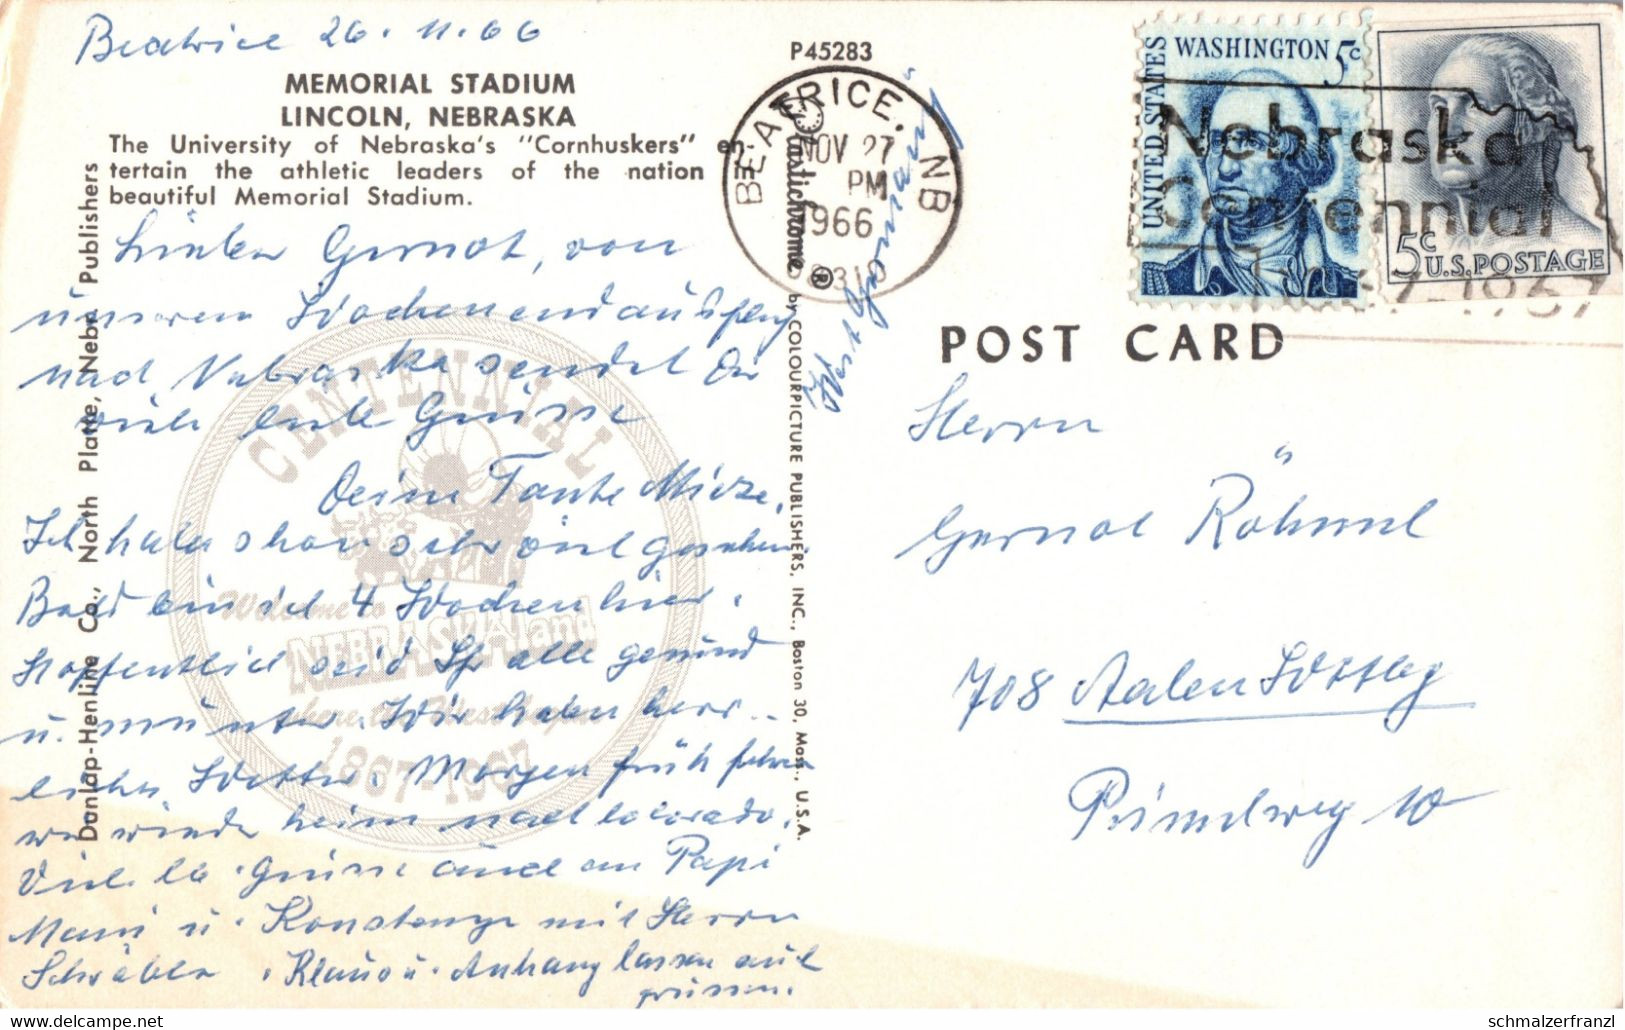 Beatrice 26.11.66
MEMORIAL STADIUM
LINCOLN, NEBRASKA
The University of Nebraska's "Cornhuskers" en-
tertain the athletic leaders of the nation
beautiful Memorial Stadium.
Lieber Gernot, von
unserem Wochenendausflug
nach Nebraska sendet Dir
viele liebe Grüsse
Deine Tante Mieze.
Ich habe schon sehr viel gesehen.
Bald bin ich 4 Wochen hier.
Hoffentlich seid Ihr alle gesund
u. munter. Wir haben herr-
liches Wetter. Morgen früh fahren
wir wieder heim nach Colorado.
Viele lb. Grüsse auch an Papi
Mami u. Konstanze mit Herrn
Schwäble. Klaus u. Anhang lassen auch
grüssen.
Dunlap-Henline Co., North Platte, Nebr. Publishers
CENTENNIAL
Welcome to
NEBRASKAland
where the West begins
1867-1967
P45283
Plastichrome ® by COLOURPICTURE PUBLISHERS, INC., Boston 30, Mass., U.S.A.
BEATRICE, NB
NOV 27
PM
1966
68310
West Germany
UNITED STATES
WASHINGTON 5c
5c
U.S. POSTAGE
Nebraska
Centennial
1867-1967
POST CARD
Herrn
Gernot Röhml
708 Aalen Wttbg
Pründweg 10
schmalzerfranzl
www.delcampe.net